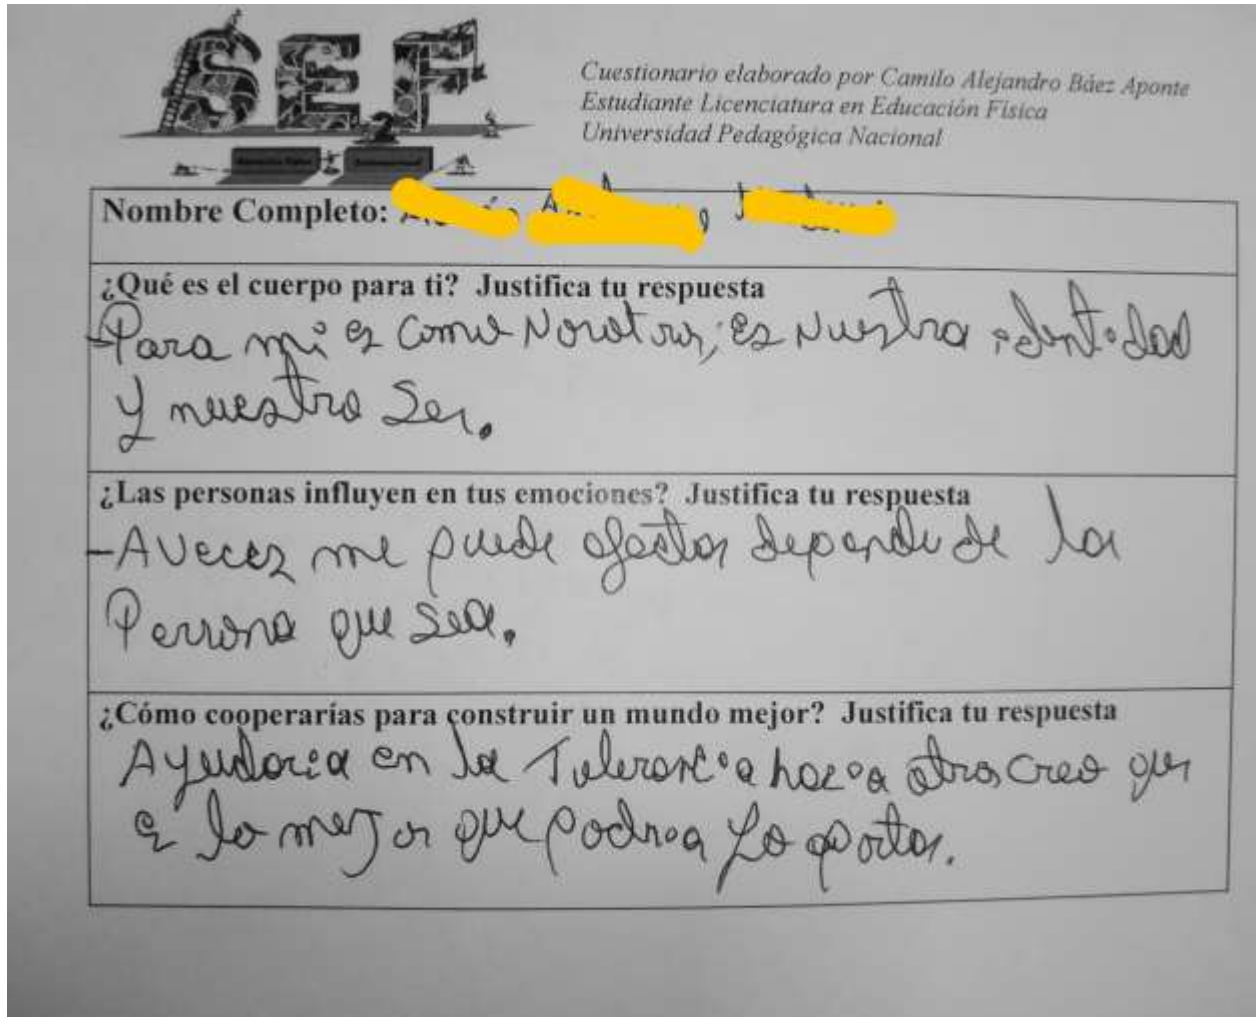 SEF
2
Cuestionario elaborado por Camilo Alejandro Báez Aponte
Estudiante Licenciatura en Educación Física
Universidad Pedagógica Nacional
Nombre Completo:
¿Qué es el cuerpo para ti? Justifica tu respuesta
-Para mi es como Nosotros, es Nuestra identidad
y nuestro Ser.
¿Las personas influyen en tus emociones? Justifica tu respuesta
-Aveces me puede afectar depende de la
Persona que sea.
¿Cómo cooperarías para construir un mundo mejor? Justifica tu respuesta
Ayudaria en la Tolerancia hacia otros creo que
es lo mejor que podria yo aportar.